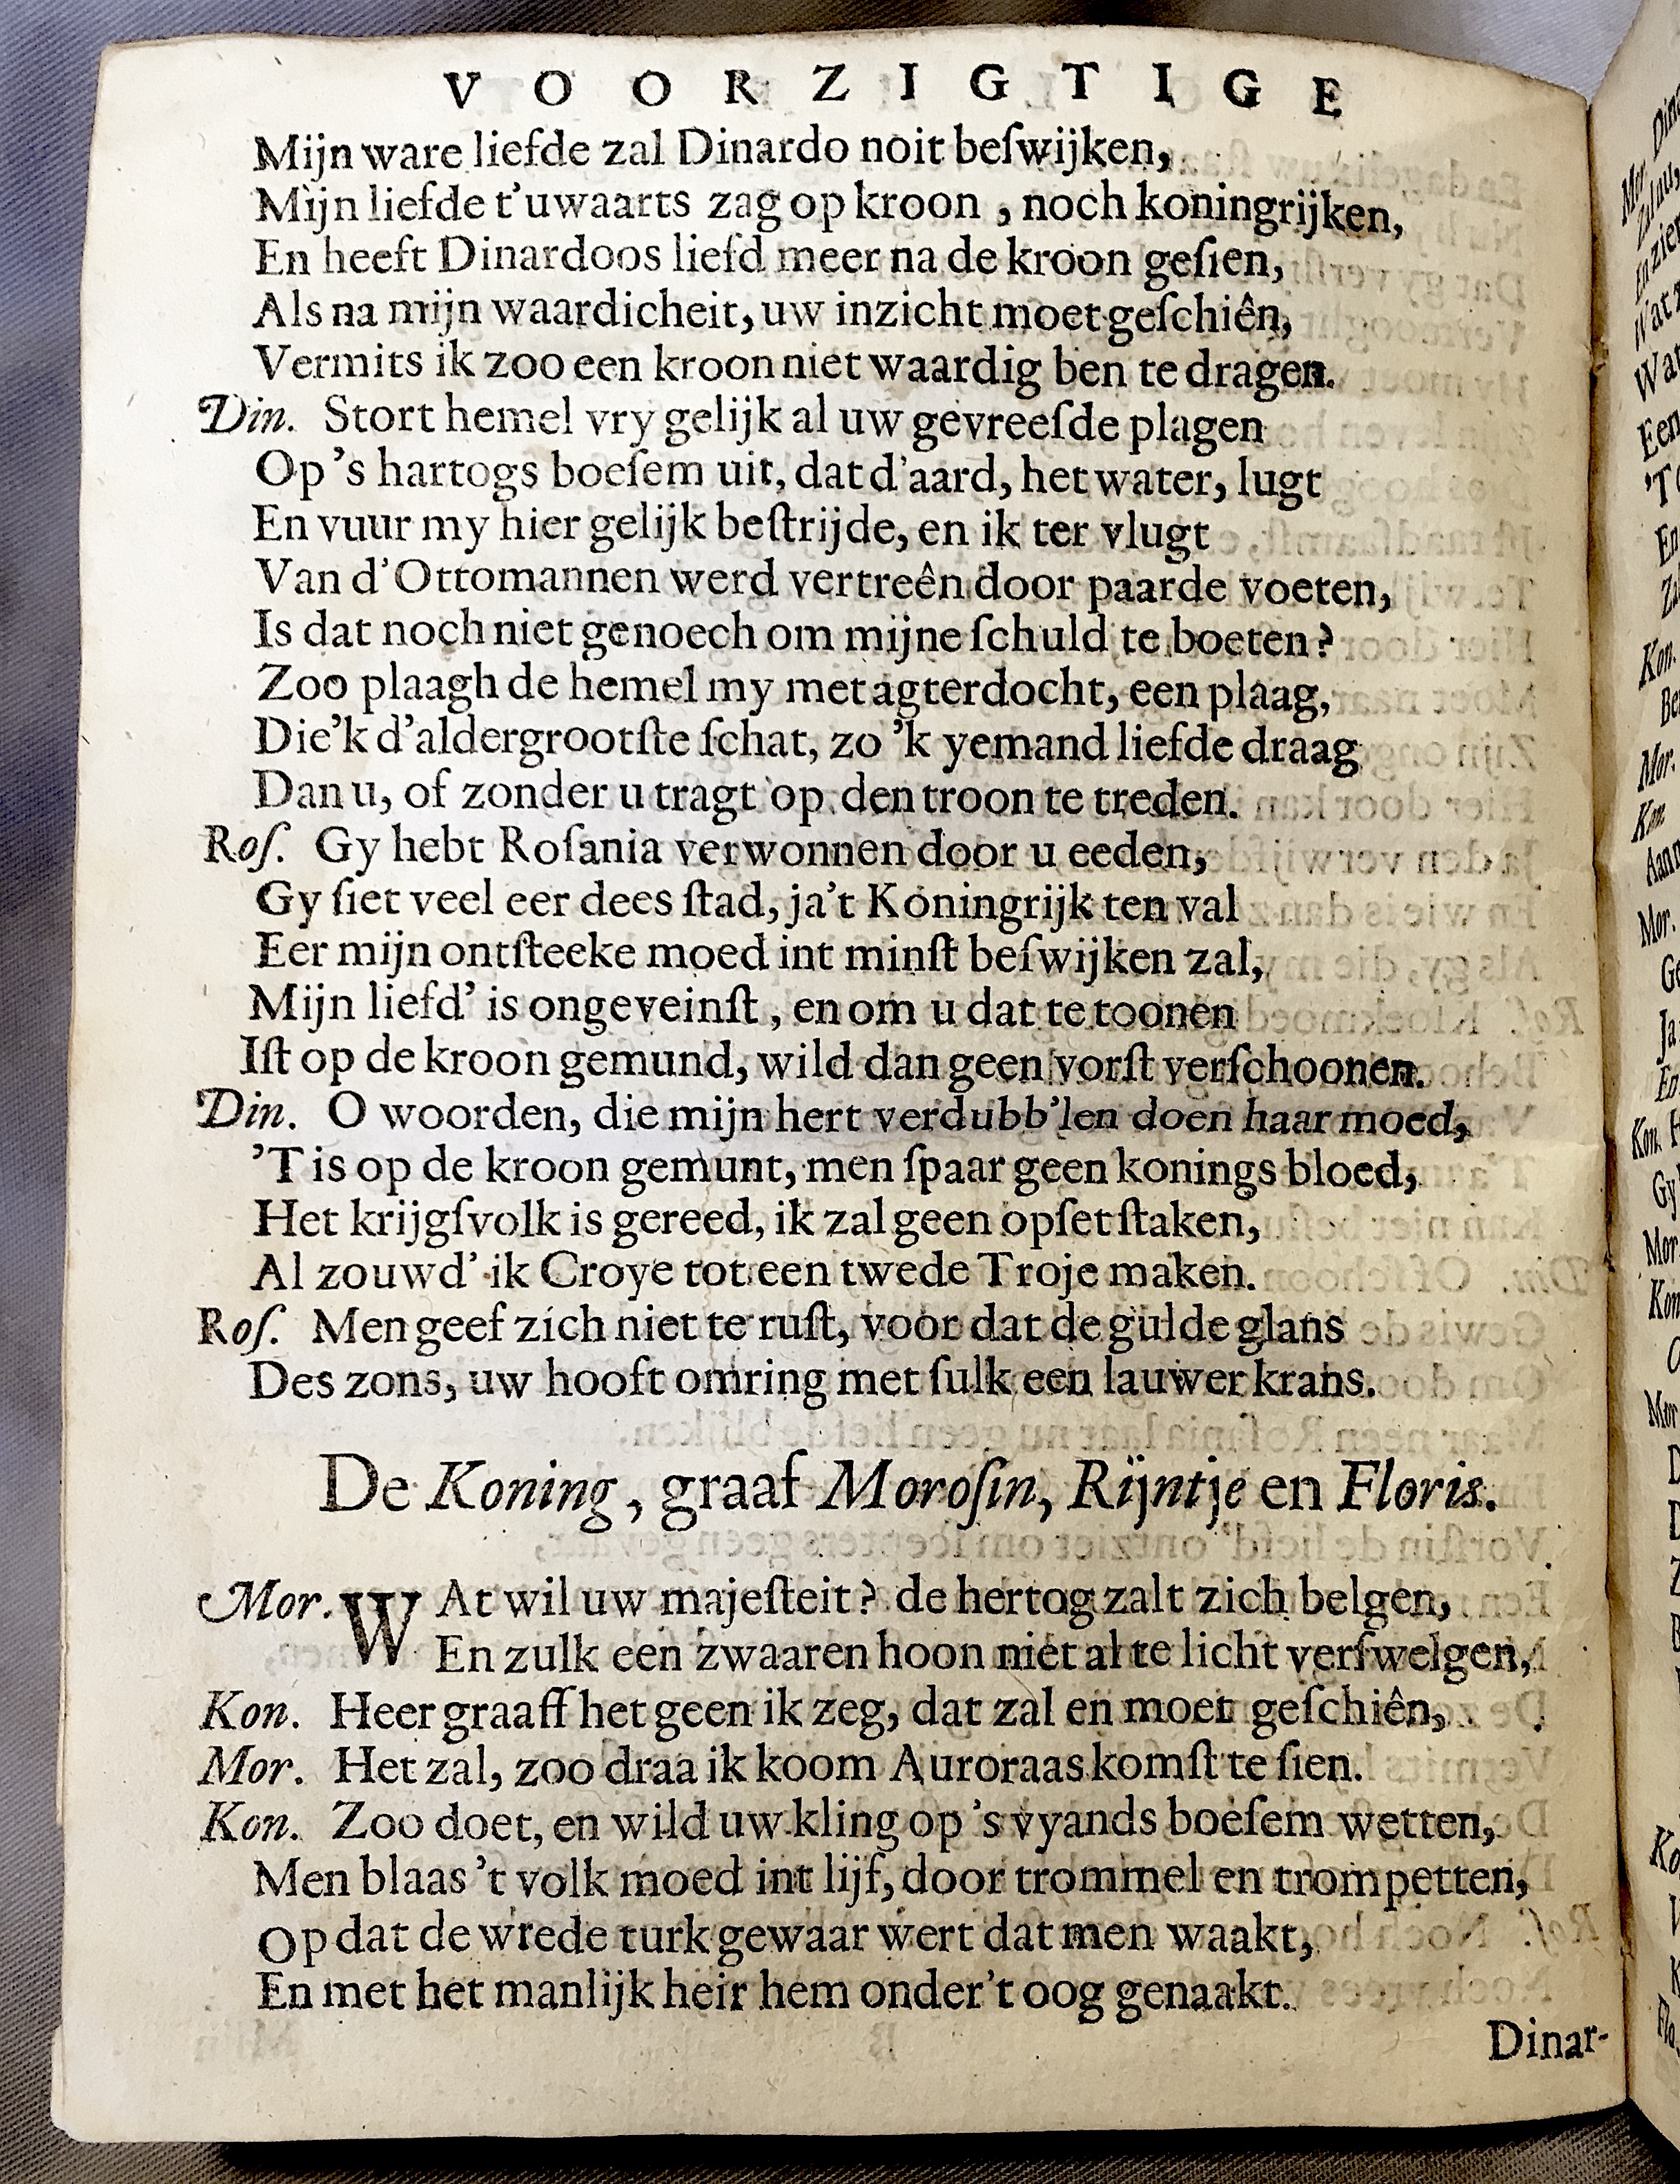 VOORZIGTIGE
Mijn ware liefde zal Dinardo noit beſwijken,
Mijn liefde t'uwaarts zag op kroon , noch koningrijken,
En heeft Dinardoos liefd meer na de kroon geſien,
Als na mijn waardicheit, uw inzicht moet geſchiên,
Vermits ik zoo een kroon niet waardig ben te dragen.
Din. Stort hemel vry gelijk al uw gevreeſde plagen
Op 's hartogs boeſem uit, dat d'aard, het water, lugt
En vuur my hier gelijk beſtrijde, en ik ter vlugt
Van d'Ottomannen werd vertreên door paarde voeten,
Is dat noch niet genoech om mijne ſchuld te boeten?
Zoo plaagh de hemel my met agterdocht, een plaag,
Die'k d'aldergrootſte ſchat, zo 'k yemand liefde draag
Dan u, of zonder u tragt op den troon te treden.
Roſ. Gy hebt Roſania verwonnen door u eeden,
Gy ſiet veel eer dees ſtad, ja't Koningrijk ten val
Eer mijn ontſteeke moed int minſt beſwijken zal,
Mijn liefd' is ongeveinſt, en om u dat te toonen
Iſt op de kroon gemund, wild dan geen vorſt verſchoonen.
Din. O woorden, die mijn hert verdubb'len doen haar moed,
'T is op de kroon gemunt, men ſpaar geen konings bloed,
Het krijgſvolk is gereed, ik zal geen opſet ſtaken,
Al zouwd' ik Croye tot een twede Troje maken.
Roſ. Men geef zich niet te ruſt, voor dat de gulde glans
Des zons, uw hooft omring met ſulk een lauwer krans.
De Koning, graaf Moroſin, Rijntje en Floris.
Mor. WAt wil uw majeſteit? de hertog zalt zich belgen,
En zulk een zwaaren hoon niet al te licht verſwelgen,
Kon. Heer graaff het geen ik zeg, dat zal en moet geſchiên,
Mor. Het zal, zoo draa ik koom Auroraas komſt te ſien.
Kon. Zoo doet, en wild uw kling op 's vyands boeſem wetten,
Men blaas 't volk moed int lijf, door trommel en trompetten,
Op dat de wrede turk gewaar wert dat men waakt,
En met het manlijk heir hem onder't oog genaakt.
Dinar-